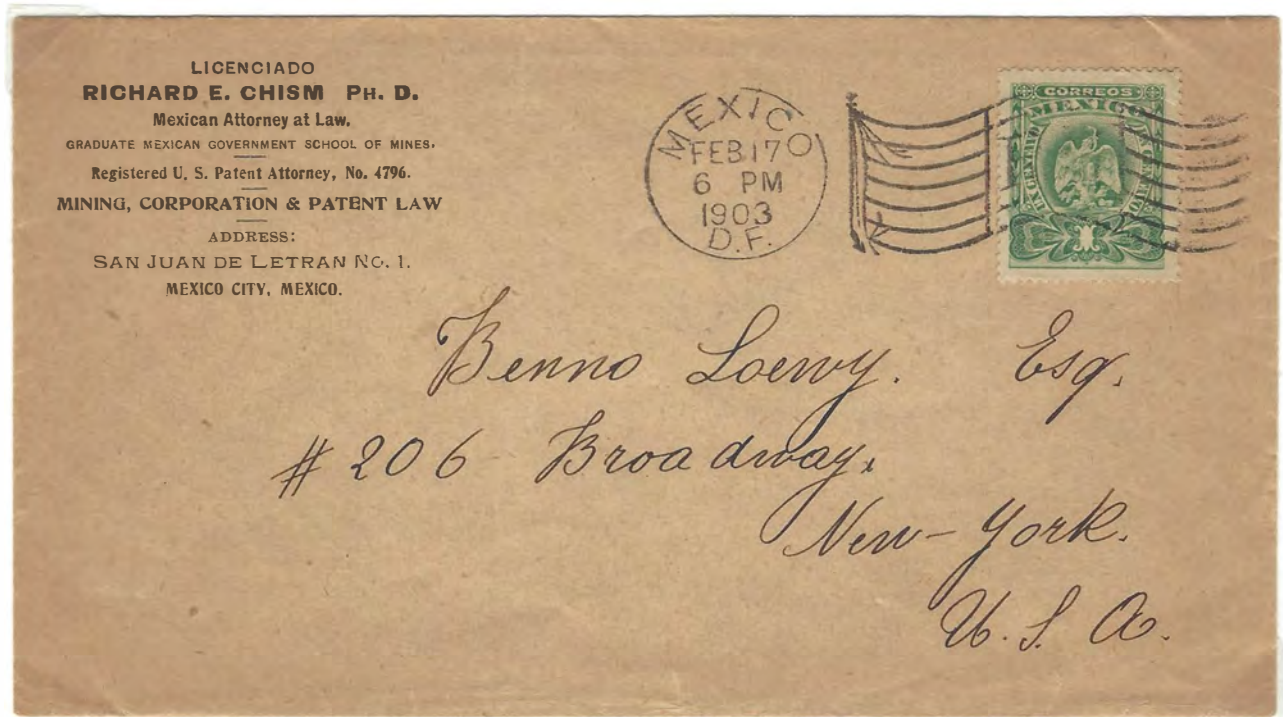 LICENCIADO
RICHARD E. CHISM PH. D.
Mexican Attorney at Law.
GRADUATE MEXICAN GOVERNMENT SCHOOL OF MINES.
Registered U. S. Patent Attorney, No. 4796.
MINING, CORPORATION & PATENT LAW
ADDRESS:
SAN JUAN DE LETRAN NO. 1.
MEXICO CITY, MEXICO.
MEXICO
FEB 17
6 PM
1903
D.F.
CORREOS
MEXICO
Benno Loewy. Esq.
# 206 Broadway.
New-York.
U. S. A.